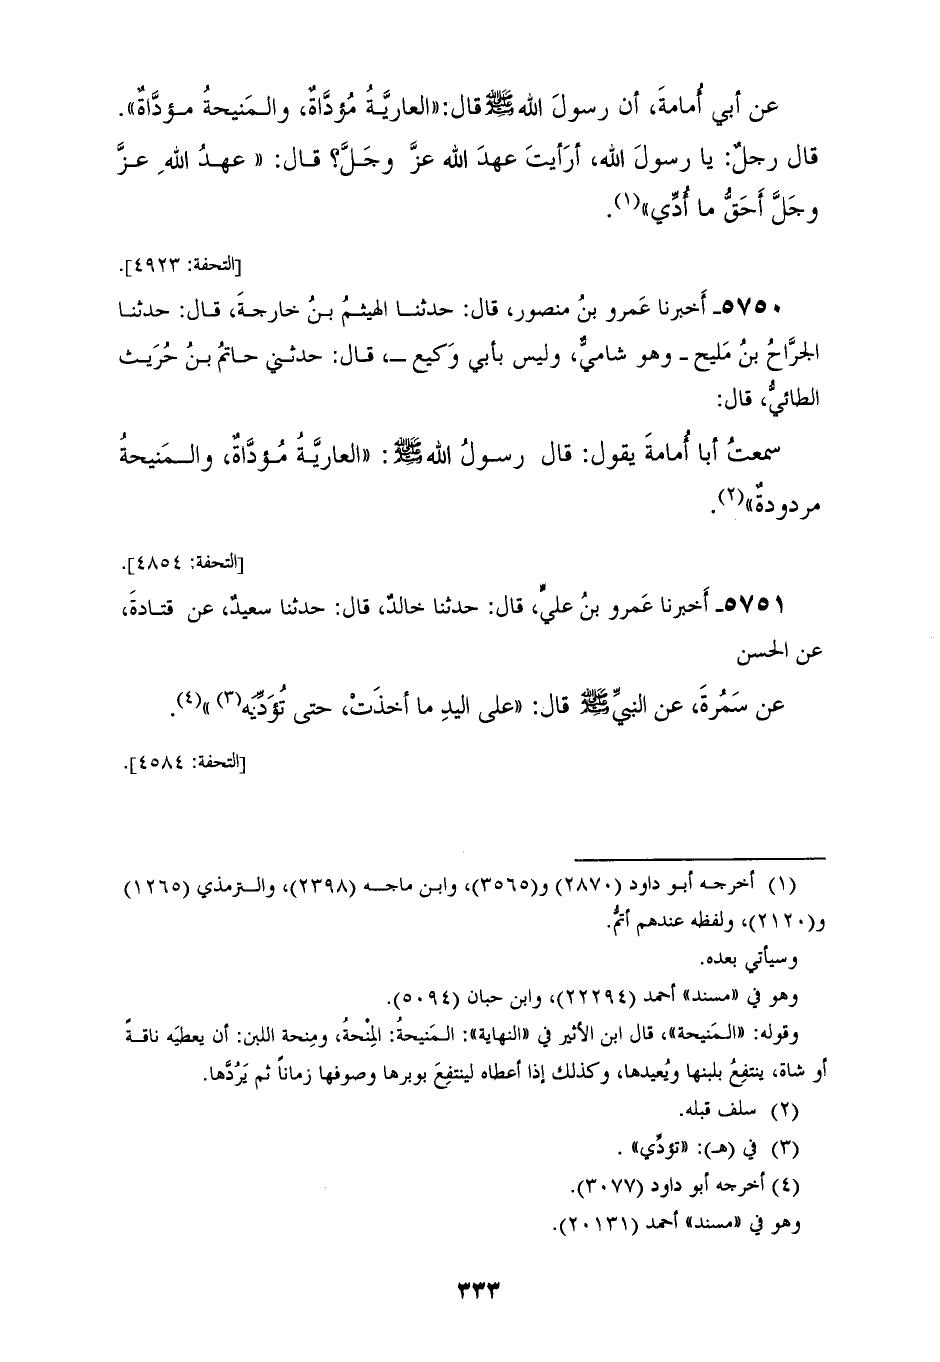 عن أبي أُمامةَ، أن رسولَ الله ﷺ قال: «العاريَّةُ مُؤدَّاةٌ، والـمَنيحةُ مـؤدَّاةٌ».
قال رجلٌ: يا رسولَ الله، أرَأيتَ عهدَ الله عزَّ وجَلَّ؟ قـال: « عهـدُ اللهِ عـزَّ
وجَلَّ أَحَقُّ ما أُدِّي»(١).
[التحفة: ٤٩٢٣].
٥٧٥٠ـ أَخبرنا عَمرو بنُ منصور، قال: حدثنـا الهيثـمُ بـنُ خارجـةَ، قـال: حدثنـا
الجرَّاحُ بنُ مَليح - وهو شاميٌّ، وليس بأبي وَكيع ــ، قـال: حدثـني حـاتمُ بـنُ حُرَيـث
الطائيُّ، قال:
سمعتُ أبا أُمامةَ يقول: قال رسـولُ الله ﷺ : «العاريَّـةُ مُـؤدَّاةٌ، والـمَنيحةُ
مردودةٌ»(٢).
[التحفة: ٤٨٥٤].
٥٧٥١ـ أَخبرنا عَمرو بنُ عليٍّ، قال: حدثنا خالدٌ، قال: حدثنا سعيدٌ، عن قتـادةَ،
عن الحسن
عن سَمُرةَ، عن النبيِّ ﷺ قال: «على اليدِ ما أخذَتْ، حتى تُؤَدِّيَه(٣) »(٤).
[التحفة: ٤٥٨٤].
(١) أخرجـه أبـو داود (٢٨٧٠) و(٣٥٦٥)، وابـن ماجـه (٢٣٩٨)، والـترمذي (١٢٦٥)
و(٢١٢٠)، ولفظه عندهم أتمُّ.
وسيأتي بعده.
وهو في «مسند» أحمد (٢٢٢٩٤)، وابن حبان (٥٠٩٤).
وقوله: «الـمَنيحة»، قال ابن الأثير في «النهاية»: الـمَنيحةُ: المِنْحةُ، ومِنحة اللبن: أن يعطيَه ناقـةً
أو شاة، ينتفِعُ بلبنها ويُعيدها، وكذلك إذا أعطاه لينتفِعَ بوبرها وصوفها زماناً ثم يَرُدَّها.
(٢) سلف قبله.
(٣) في (هـ): «تؤدِّي» .
(٤) أخرجه أبو داود (٣٠٧٧).
وهو في «مسند» أحمد (٢٠١٣١).
٣٣٣